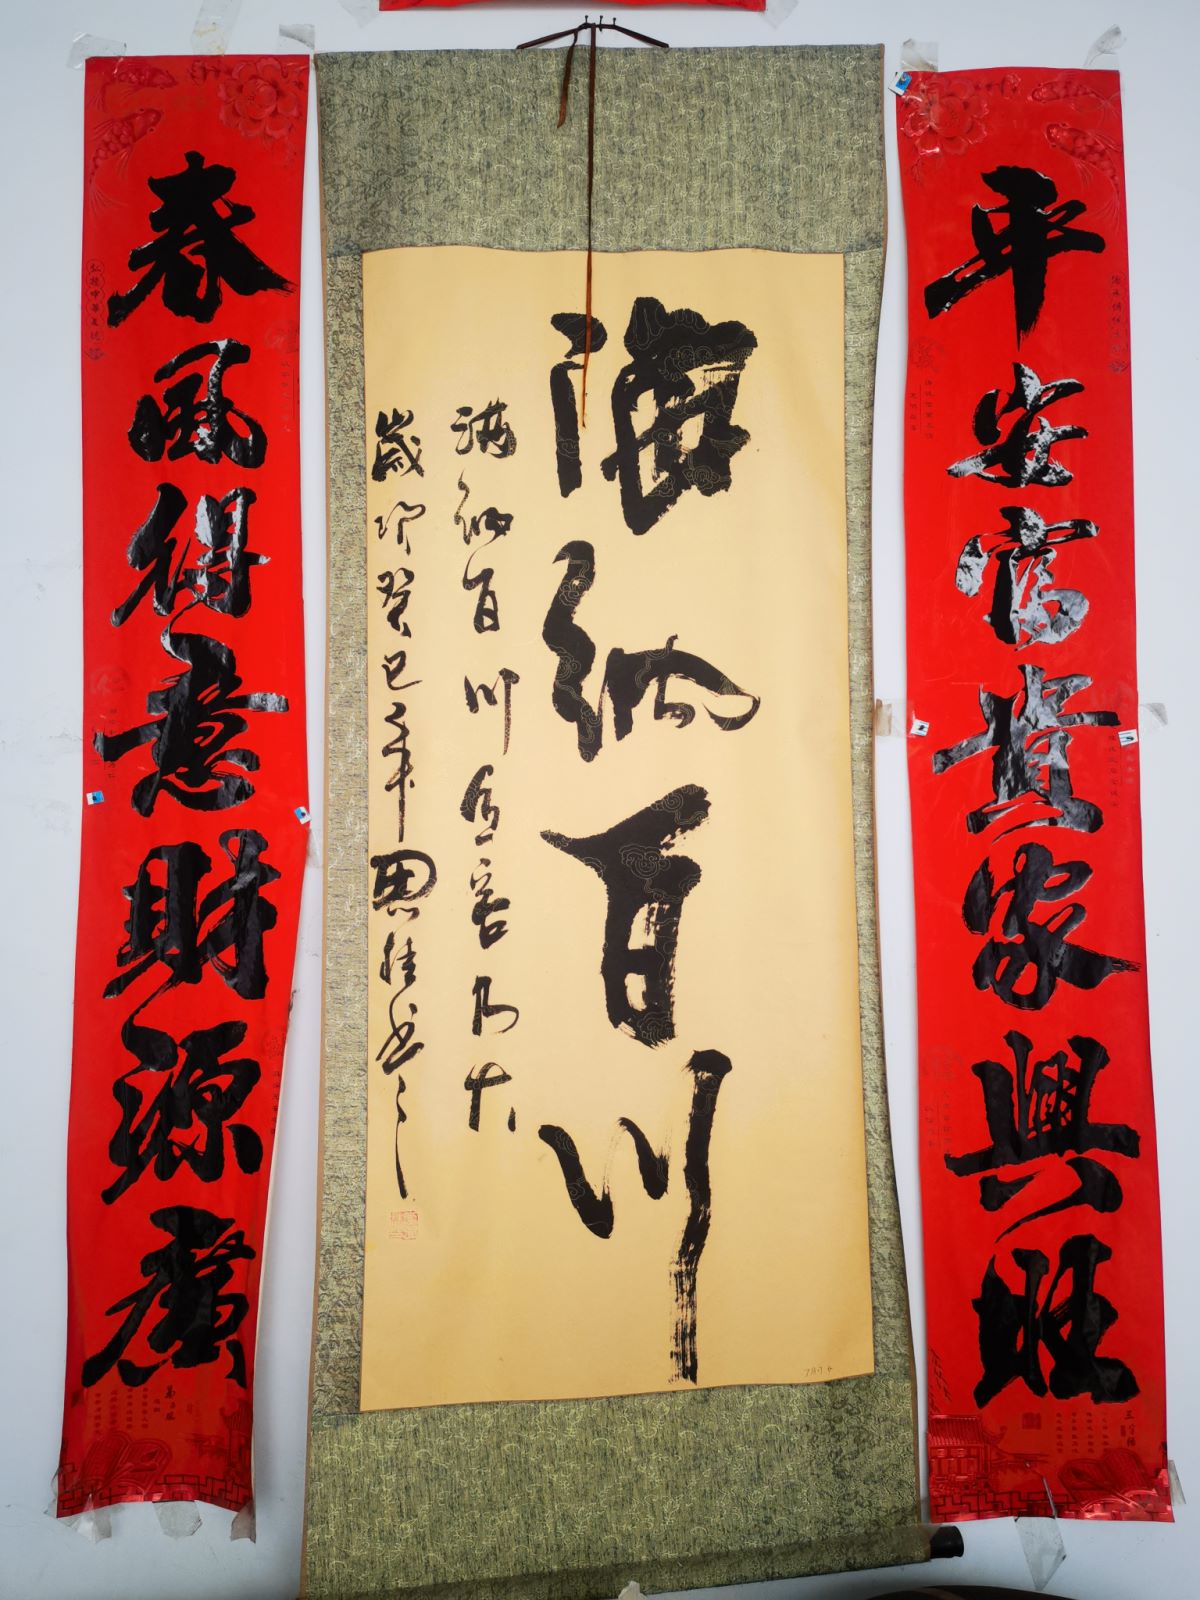 平安富貴家興旺
海納百川
海納百川有容乃大
歲次癸巳年
書
春風得意財源廣